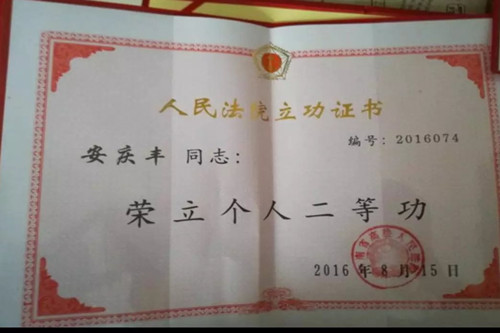 人民法院立功证书
编号:2016074
安庆丰 同志:
荣立个人二等功
2016年8月15日